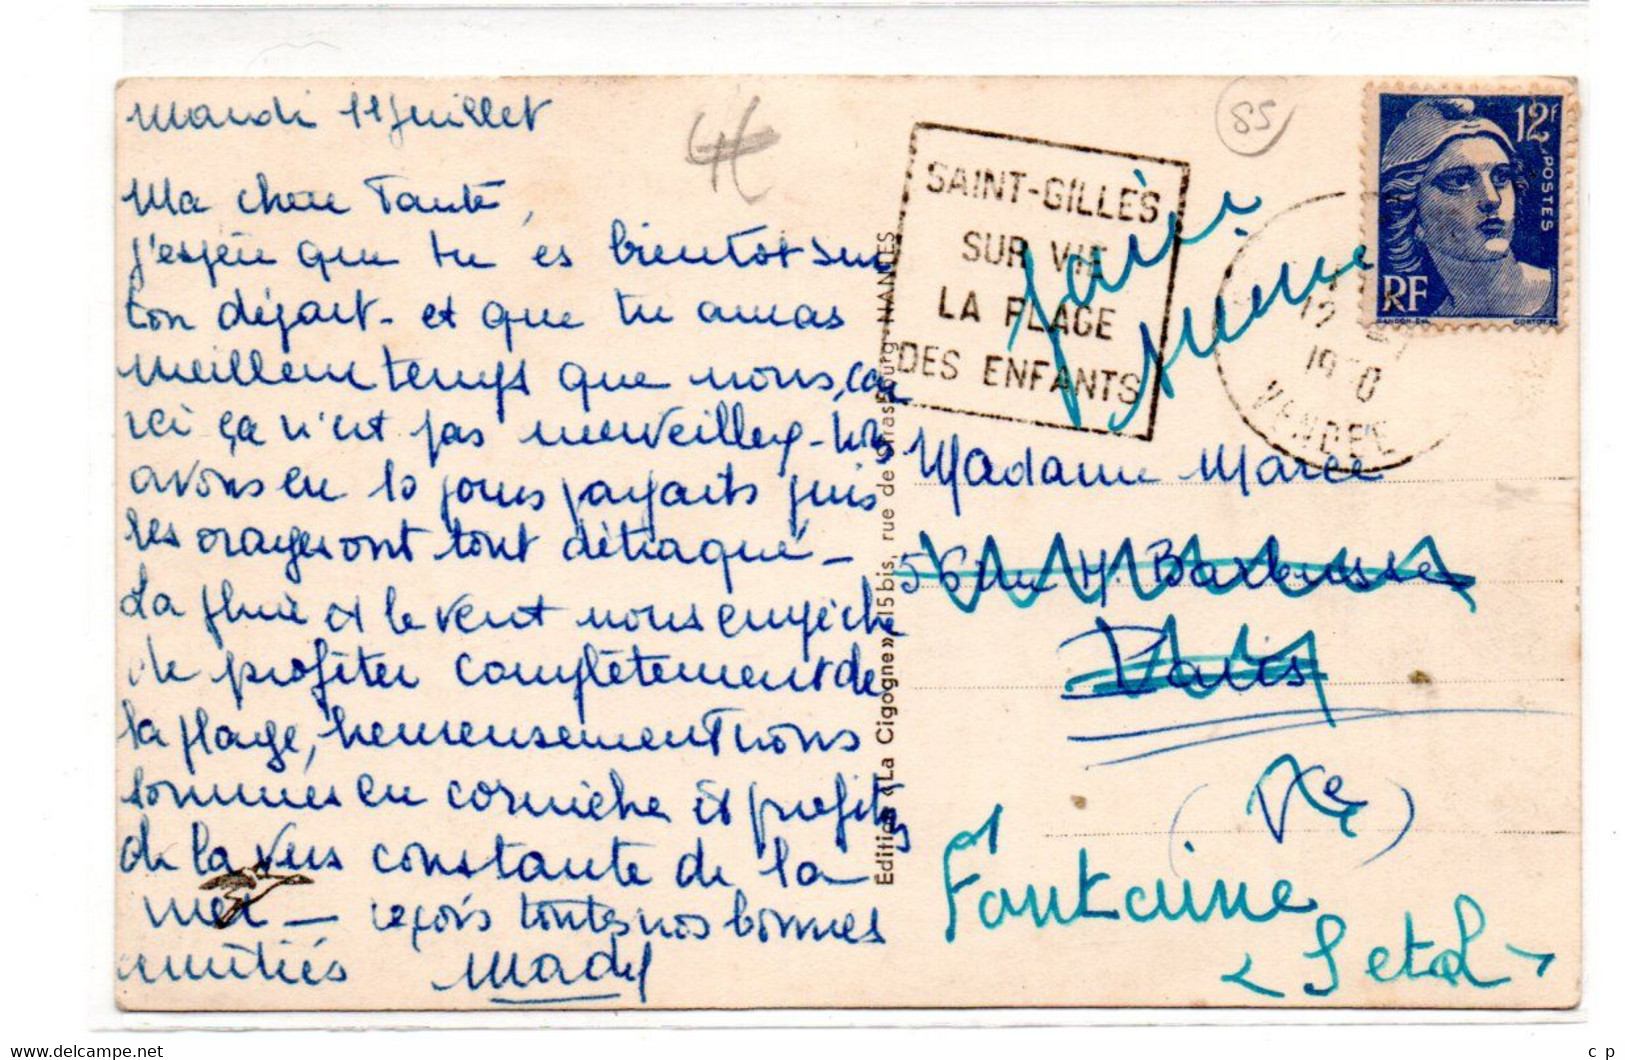 Mardi 11 Juillet
Ma chère Tante,
j'espère que tu es bientot sur
ton départ - et que tu auras
meilleur temps que nous, car
ici ça n'est pas merveilleux - Nous
avons eu 10 jours parfaits puis
les orages ont tout détraqué -
La pluie et le vent nous empêche
de profiter complètement de
la plage, heureusement nous
sommes en corniche et profitons
de la vue constante de la
mer - reçois toutes nos bonnes
amitiés Mady
Edition «La Cigogne» 15 bis, rue de Strasbourg - NANTES
85
SAINT-GILLES
SUR VIE
LA PLAGE
DES ENFANTS
12F
POSTES
RF
GANDON-DEL
CORTOT-SC
12
1950
VENDEE
faire suivre
Madame Marée
56 rue H. Barbusse
Paris
(Ve)
Fontaine
delcampe.net
c p